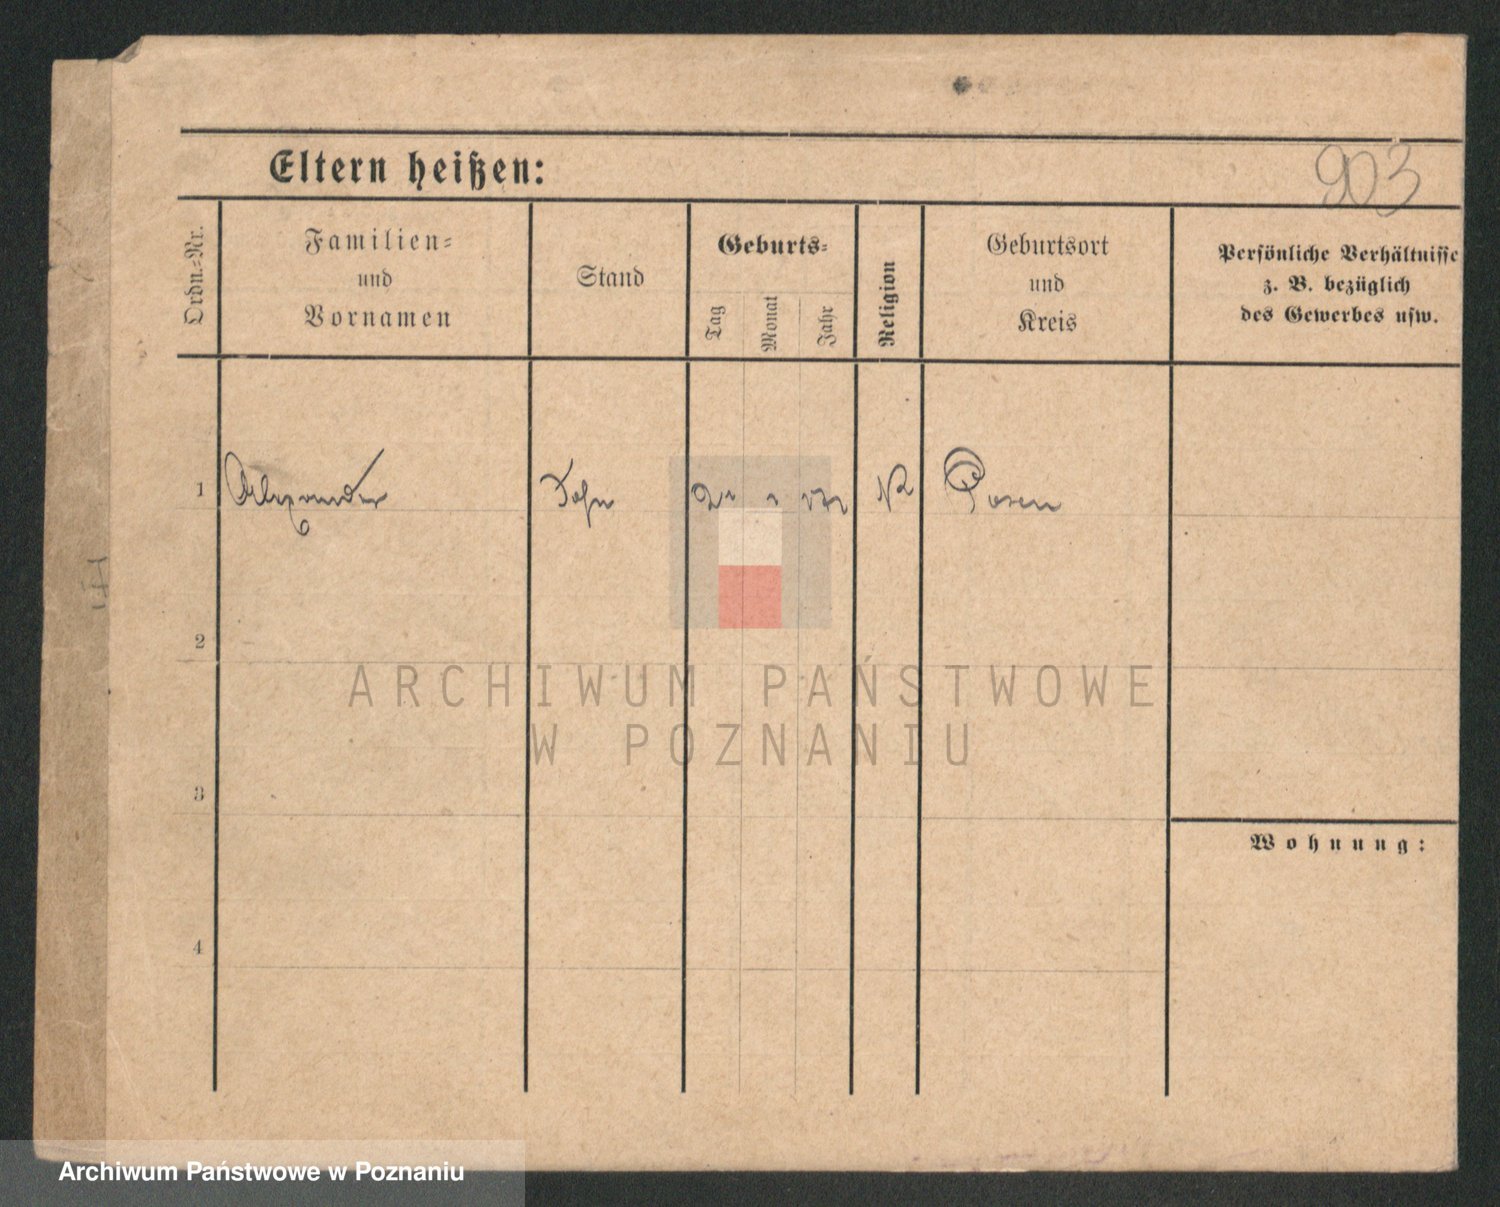 Eltern heißen:
903
Ordn.-Nr.
Familien-
und
Vornamen
Stand
Geburts-
Tag
Monat
Jahr
Religion
Geburtsort
und
Kreis
Persönliche Verhältnisse
z. B. bezüglich
des Gewerbes usw.
1 Alexander Sohn Posen
2
3
4
Wohnung:
ARCHIWUM PAŃSTWOWE
W POZNANIU
Archiwum Państwowe w Poznaniu